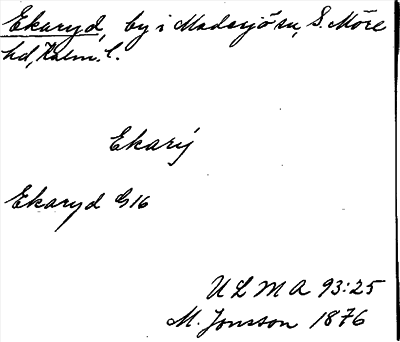 Ekaryd, by i Madesjö sn, S. Möre
hd, Kalm. l.
Ekarý
Ekaryd G16
ULMA 93:25
M. Jonsson 1876